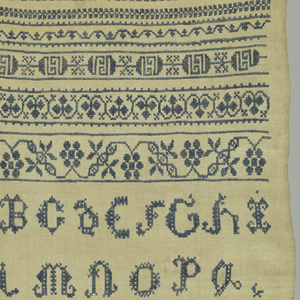 B C D E F G H I
M N O P Q